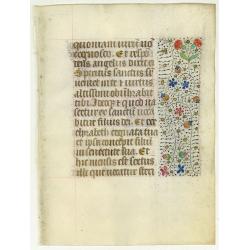 quoniam virum no
cognosco. Et respo
dens angelus dixit ei
Spiritus sanctus su
veniet in te et virtus
altissimi obumbrabit
tibi. Ideoq et quod na
scetur ex sanctu voca
bitur filius dei. Et ec
elizabeth cognata tua
et ipsa concepit filiu
in senectute sua. Et
hic mensis est sextus
illi que vocatur steri